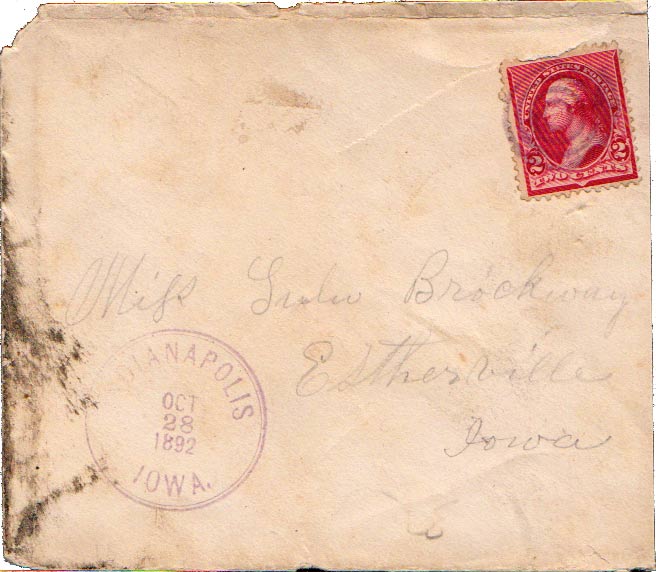 UNITED STATES POSTAGE
2 2
TWO CENTS
Miss Lulu Brockway
Estherville
Iowa
DIANAPOLIS
OCT
28
1892
IOWA.